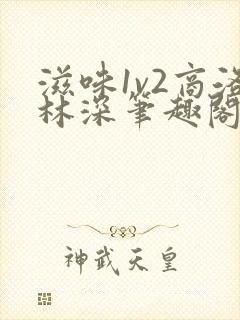 滋味1v2高洛
林深笔趣阁
神武天皇